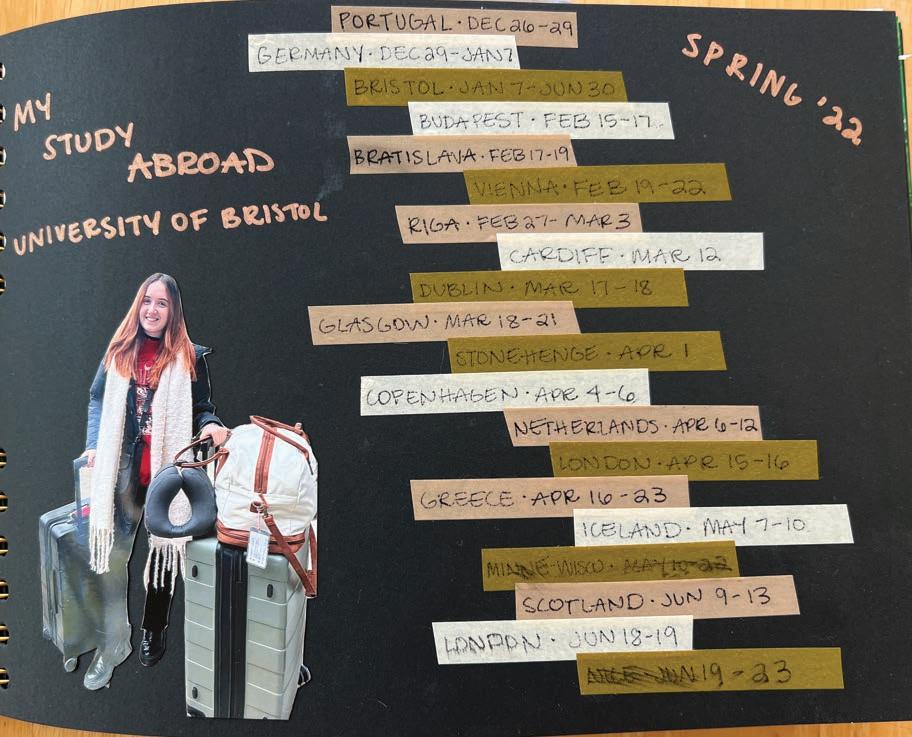 PORTUGAL · DEC 26-29
GERMANY · DEC 29-JAN 7
BRISTOL · JAN 7-JUN 30
BUDAPEST · FEB 15-17
BRATISLAVA · FEB 17-19
VIENNA · FEB 19-22
RIGA · FEB 27- MAR 3
CARDIFF · MAR 12
DUBLIN · MAR 17-18
GLASGOW · MAR 18-21
STONEHENGE · APR 1
COPENHAGEN · APR 4-6
NETHERLANDS · APR 6-12
LONDON · APR 15-16
GREECE · APR 16-23
ICELAND · MAY 7-10
MINNE-WISCO · MAY 10-22
SCOTLAND · JUN 9-13
LONDON · JUN 18-19
NICE · JUN 19-23
SPRING '22
MY
STUDY
ABROAD
UNIVERSITY OF BRISTOL